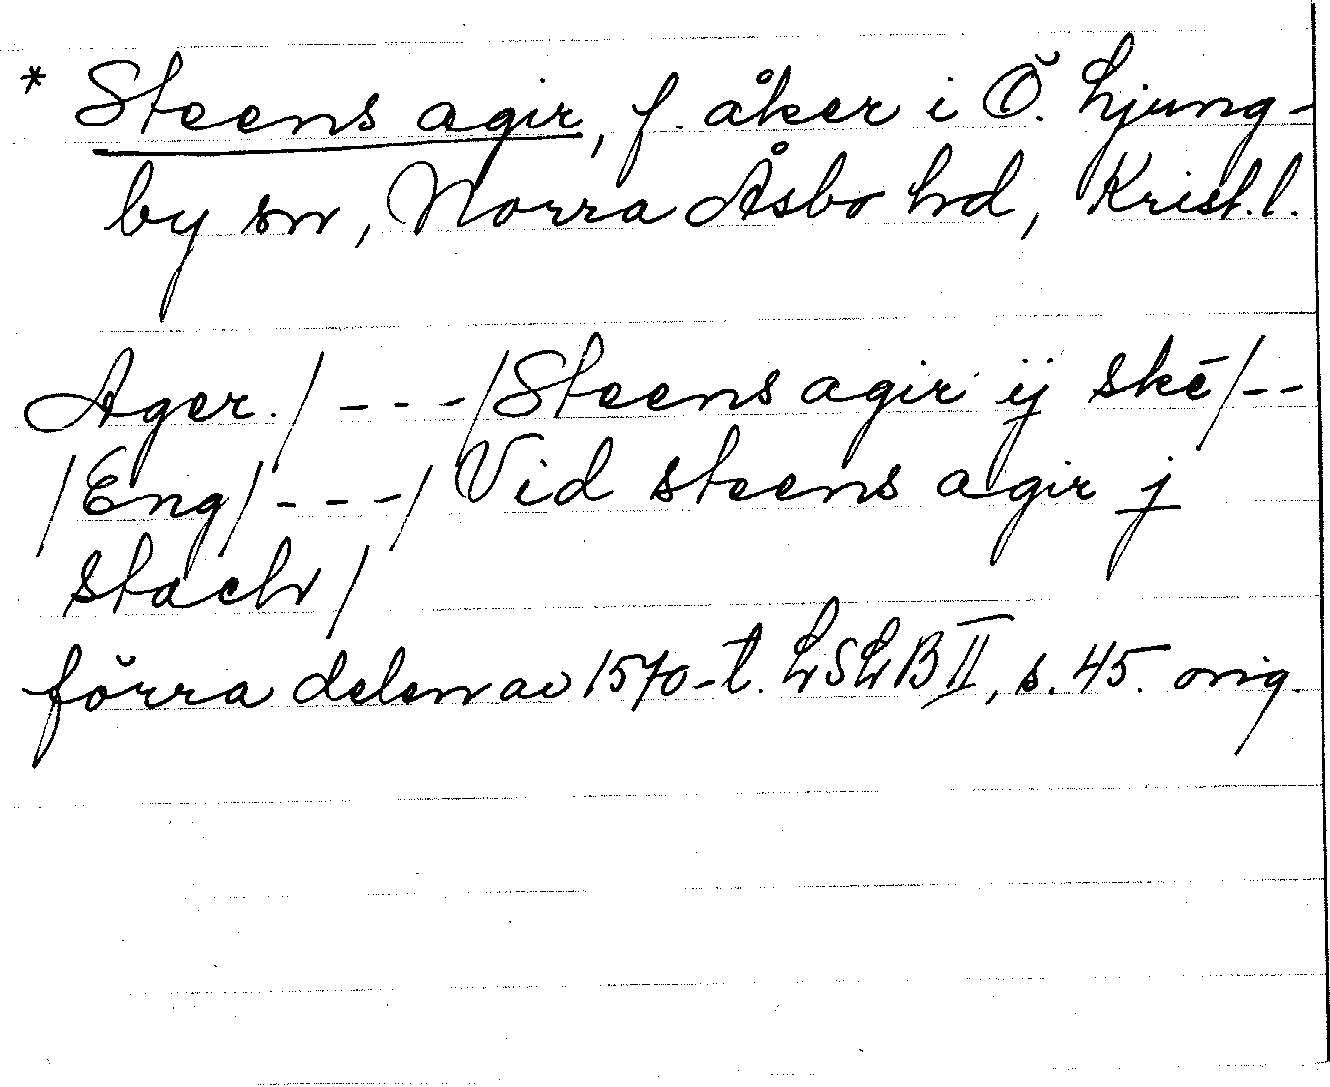 * Steens agir, f. åker i Ö. Ljung-
by sn, Norra Åsbo hd, Krist. l.
Ager. / - - - / Steens agir ij skē / - -
/ Eng / - - - / Vid steens agir j
stach /
förra delen av 1570-t. LSLB II, s. 45. orig.